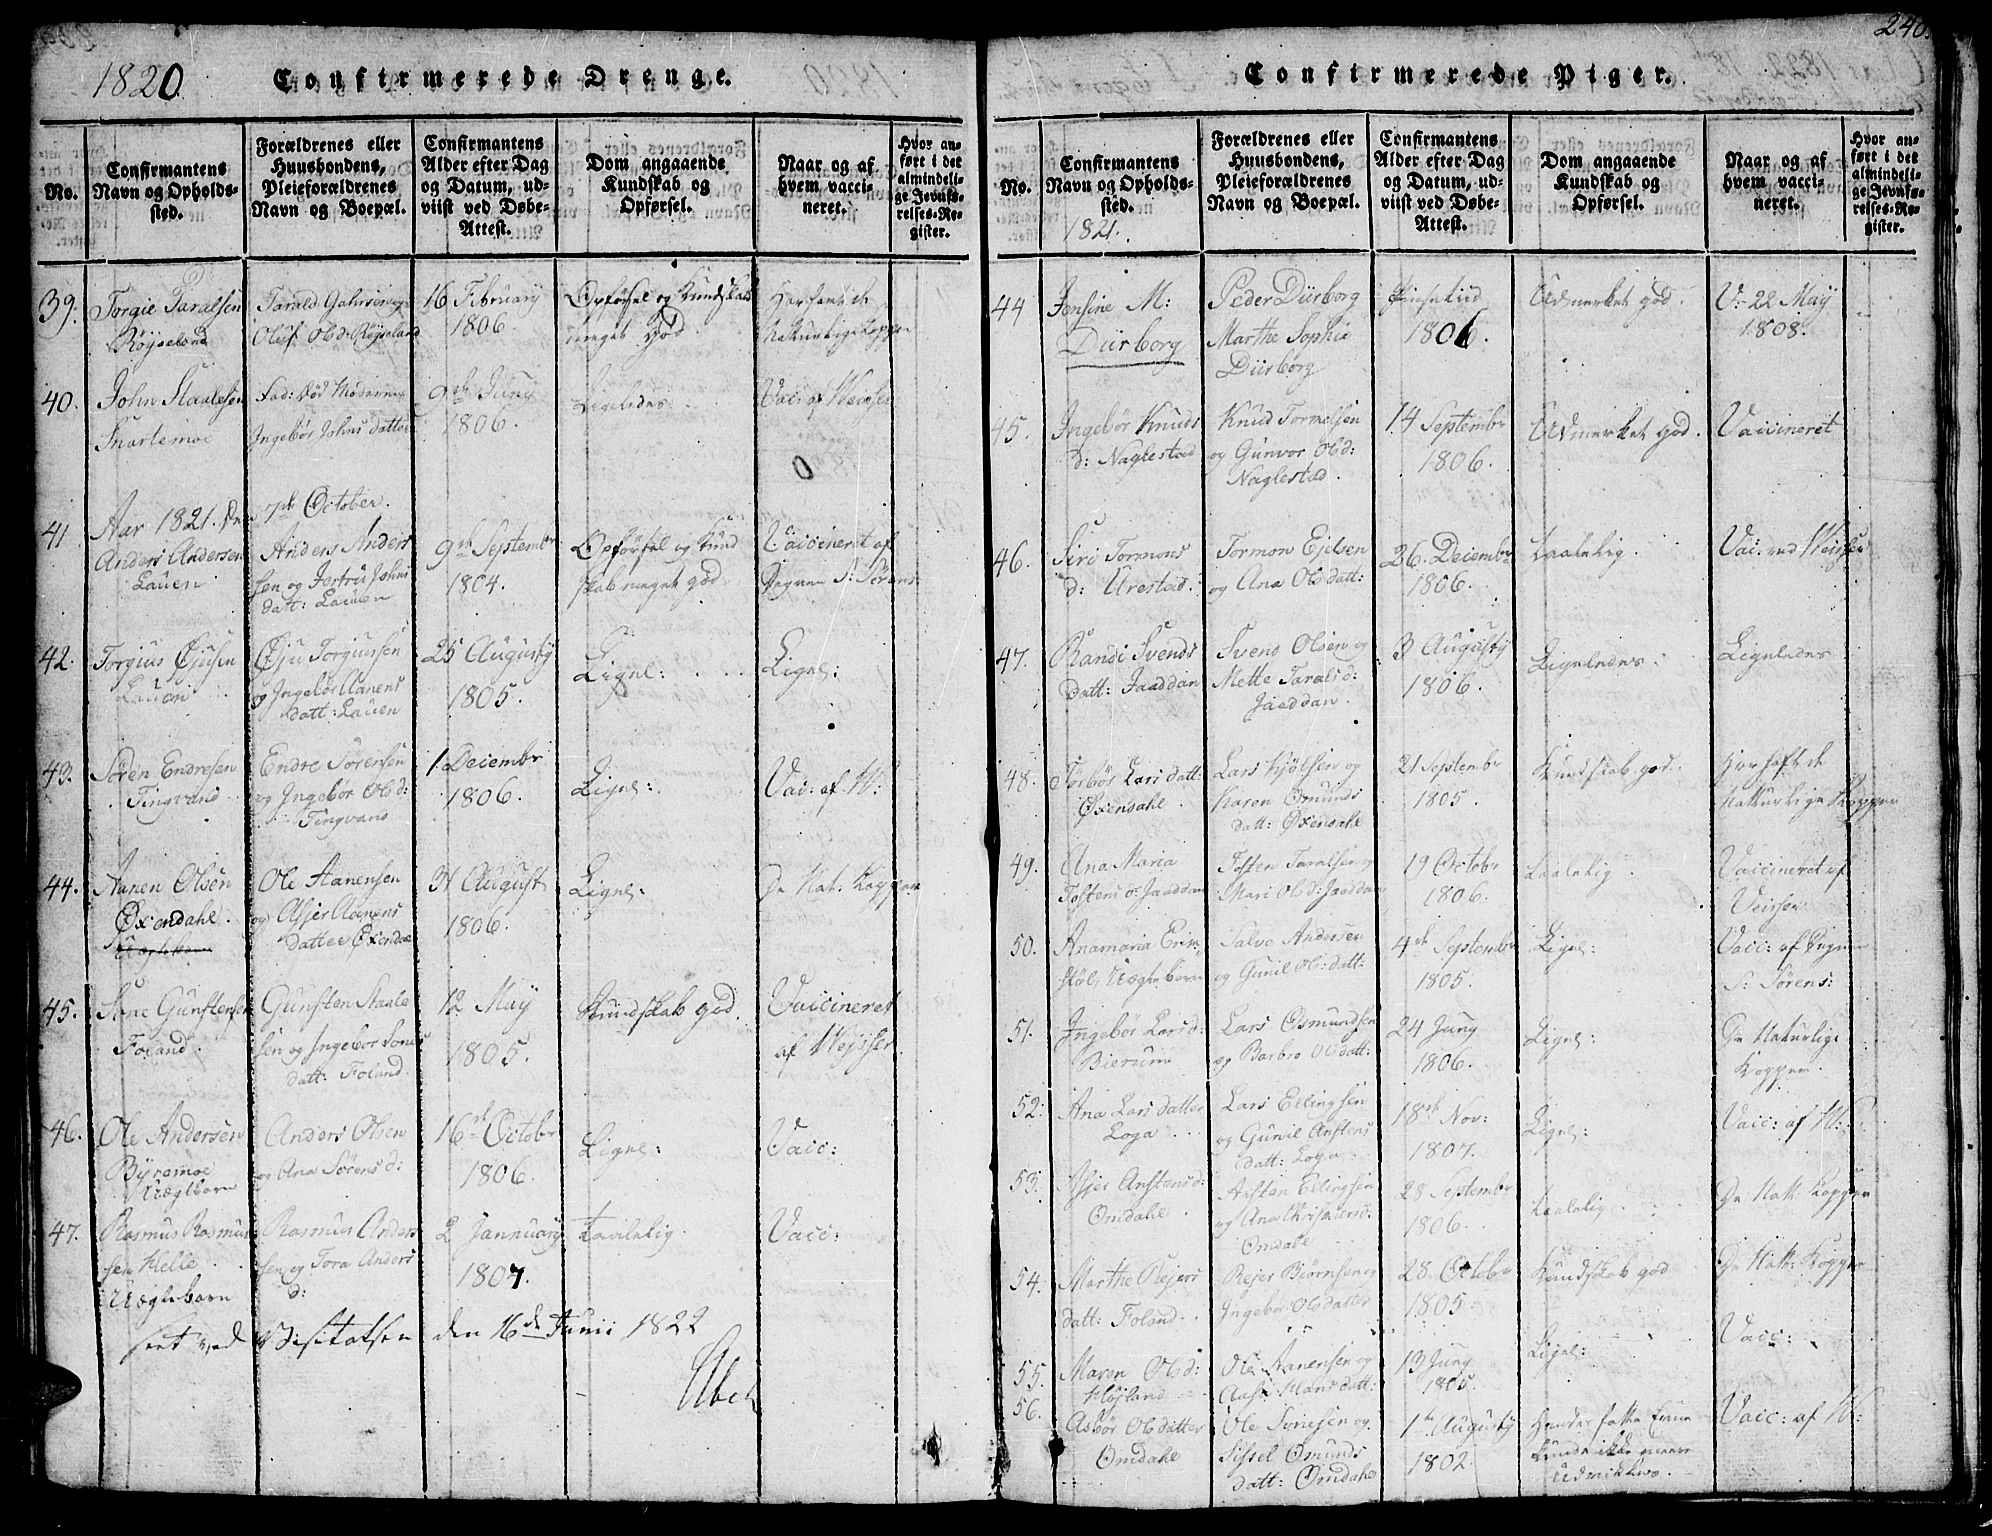 1820 Confirmerede Drenge.
No.
Confirmantens
Navn og Opholds-
sted.
Forældrenes eller
Huusbondens,
Pleieforældrenes
Navn og Boepæl.
Confirmantens
Alder efter Dag
og Datum, ud-
viist ved Døbe-
Attest.
Dom angaaende
Kundskab og
Opførsel.
Naar og af
hvem vacci-
neret.
Hvor an-
ført i det
almindeli-
ge Jevnfø-
relses-Re-
gister.
39. Torgie Taralsen
Röyseland
Oluf Obd: Röyseland
16 February
1806.
Opförsel og Kundskab
meget God
Naturlige Kopper
40. John Staalesen
Snartemoe
Fad: död Moderen
Ingebör Johns datter
9de Juny
1806.
Ligeledes
Vac: af Weisser
Aar 1821. den 7de October.
41 Anders Andersen
Lauen
Anders Anders
sen og Jertru Johns
datt: Lauen
9de Septembr
1804.
Opförsel og Kund
skab meget god
Vaccineret af
S: Sörens:
42. Torgius Öjusen
Lauen
Öju Torgiussen
og Ingebör Aanens
datt: Lauen
25 Augusty
1805.
Ligel:
Ligel:
43. Sören Endresen
Tingvand
Endre Sörensen
og Ingebör Obd:
Tingvand
1. Decembr
1806.
Ligel:
Vac: af W:
44. Aanen Olsen
Öxendahl.
Ole Aanensen
og Asjer Aanens
datter Öxendal
31 August
1806.
Ligel:
De Nat. Kopper
45. Tone Gunstensen
Foland.
Gunsten Staale
sen og Ingebor Tones
datt: Foland.
12 May
1805.
Kundskab god.
Vaccineret
af Wejsser
46. Ole Andersen
Byremoe
Uægteborn
Anders Olsen
og Ana Sörens d:
16de Octobr
1806.
Ligel:
Vacc:
47. Rasmus Rasmus
sen Helle
Uægteborn
Rasmus Anders
sen og Tora Anders
d:
2 Jannuary
1807.
Taalelig
Vacc:
seet ved Visitatsen den 16de Junii 1822
240.
Confirmerede Piger.
No.
Confirmantens
Navn og Opholds-
sted.
1821.
Forældrenes eller
Huusbondens,
Pleieforældrenes
Navn og Boepæl.
Confirmantens
Alder efter Dag
og Datum, ud-
viist ved Døbe-
Attest.
Dom angaaende
Kundskab og
Opførsel.
Naar og af
hvem vacci-
neret.
Hvor an-
ført i det
almindeli-
ge Jevnfø-
relses-Re-
gister.
44 Jensine M:
Dürborg
Peder Dürborg
Marthe Sophie
Dürborg
Pinsetiid
1806.
Udmerket god.
V: 22 May
1808.
45. Ingebör Knuds
d: Naglestad
Knud Tormelsen
og Gunvor Obd:
Naglestad.
14 Septembr
1806.
Udmerket god.
Vaccineret
46. Siri Tormons
d: Urestad:
Tormon Ejelsen
og Ana Obdatt:
26. Decembr
1806.
Taalelig.
Vac. ved Weisser
47. Randi Svends
datt: Jaaddan
Svend Olsen og
Mette Tarals d:
Jaaddan.
3 Augusty
1806.
Ligeledes
Ligeledes
48. Torbör Lars datt:
Öxendahl.
Lars Kjölsen og
Karen Omunds
datt: Öxendahl
21 Septembr
1805.
Kundskab god.
Har haft de
Naturlige Kopper
49. Ana Maria
Tostens d: Jaaddan
Tosten Taralsen og
Mari Obd: Jaaddan
19 Octobr
1806.
Taalelig.
Vaccineret af
Veisser
50. Anamaria
Uægteboren
Salve Andersen
og Gunil Ols: datt:
4de Septembr
1805.
Ligel:
Vacc: af
S: Sörens:
51. Ingebör Lars d:
Bierum
Lars Osmundsen
og Barbro Obdatt:
24 Juny
1806.
Ligel:
De Naturlige
Kopper.
52. Ana Lars datter
Loga
Lars Ellingsen
og Gunil Anstens
datt: Loga.
18de Nov:
1807.
Ligel:
Vacc: af W:
53. Asjer Anstens d:
Omdahl.
Ansten Ellingsen
og Ana
Omdahl
28 Septembr
1806.
Taalelig.
De Natt. Kopper
54. Marthe Rejers
datt: Foland.
Rejer Biörnsen og
Ingebör Obdatter
28. Octobr
1805.
Kundskab god
De Natt: Kopper
55. Maren Obd:
Höjland
Ole Aanensen og
Aase Hans datt:
13 Juny
1805.
Ligel:
Vacc:
56. Asbör Obdatter
Omdahl
Ole Tonesen og
Sissel Omunds
datt: Omdahl
1de Augusty
1802.
Kunde ikke meere
Udvikkles.
Vacc: af W: